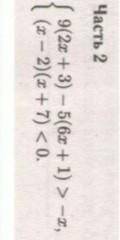 Часть 2
{ 9(2x + 3) − 5(6x + 1) > −x,
(x − 2)(x + 7) < 0.